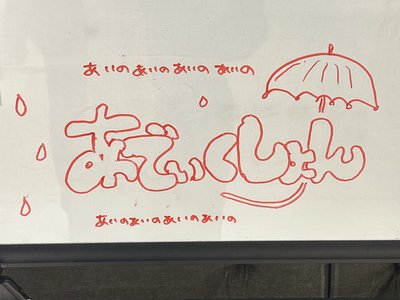 あいの あいの あいの あいの
あでぃくしょん
あいのあいのあいのあいの